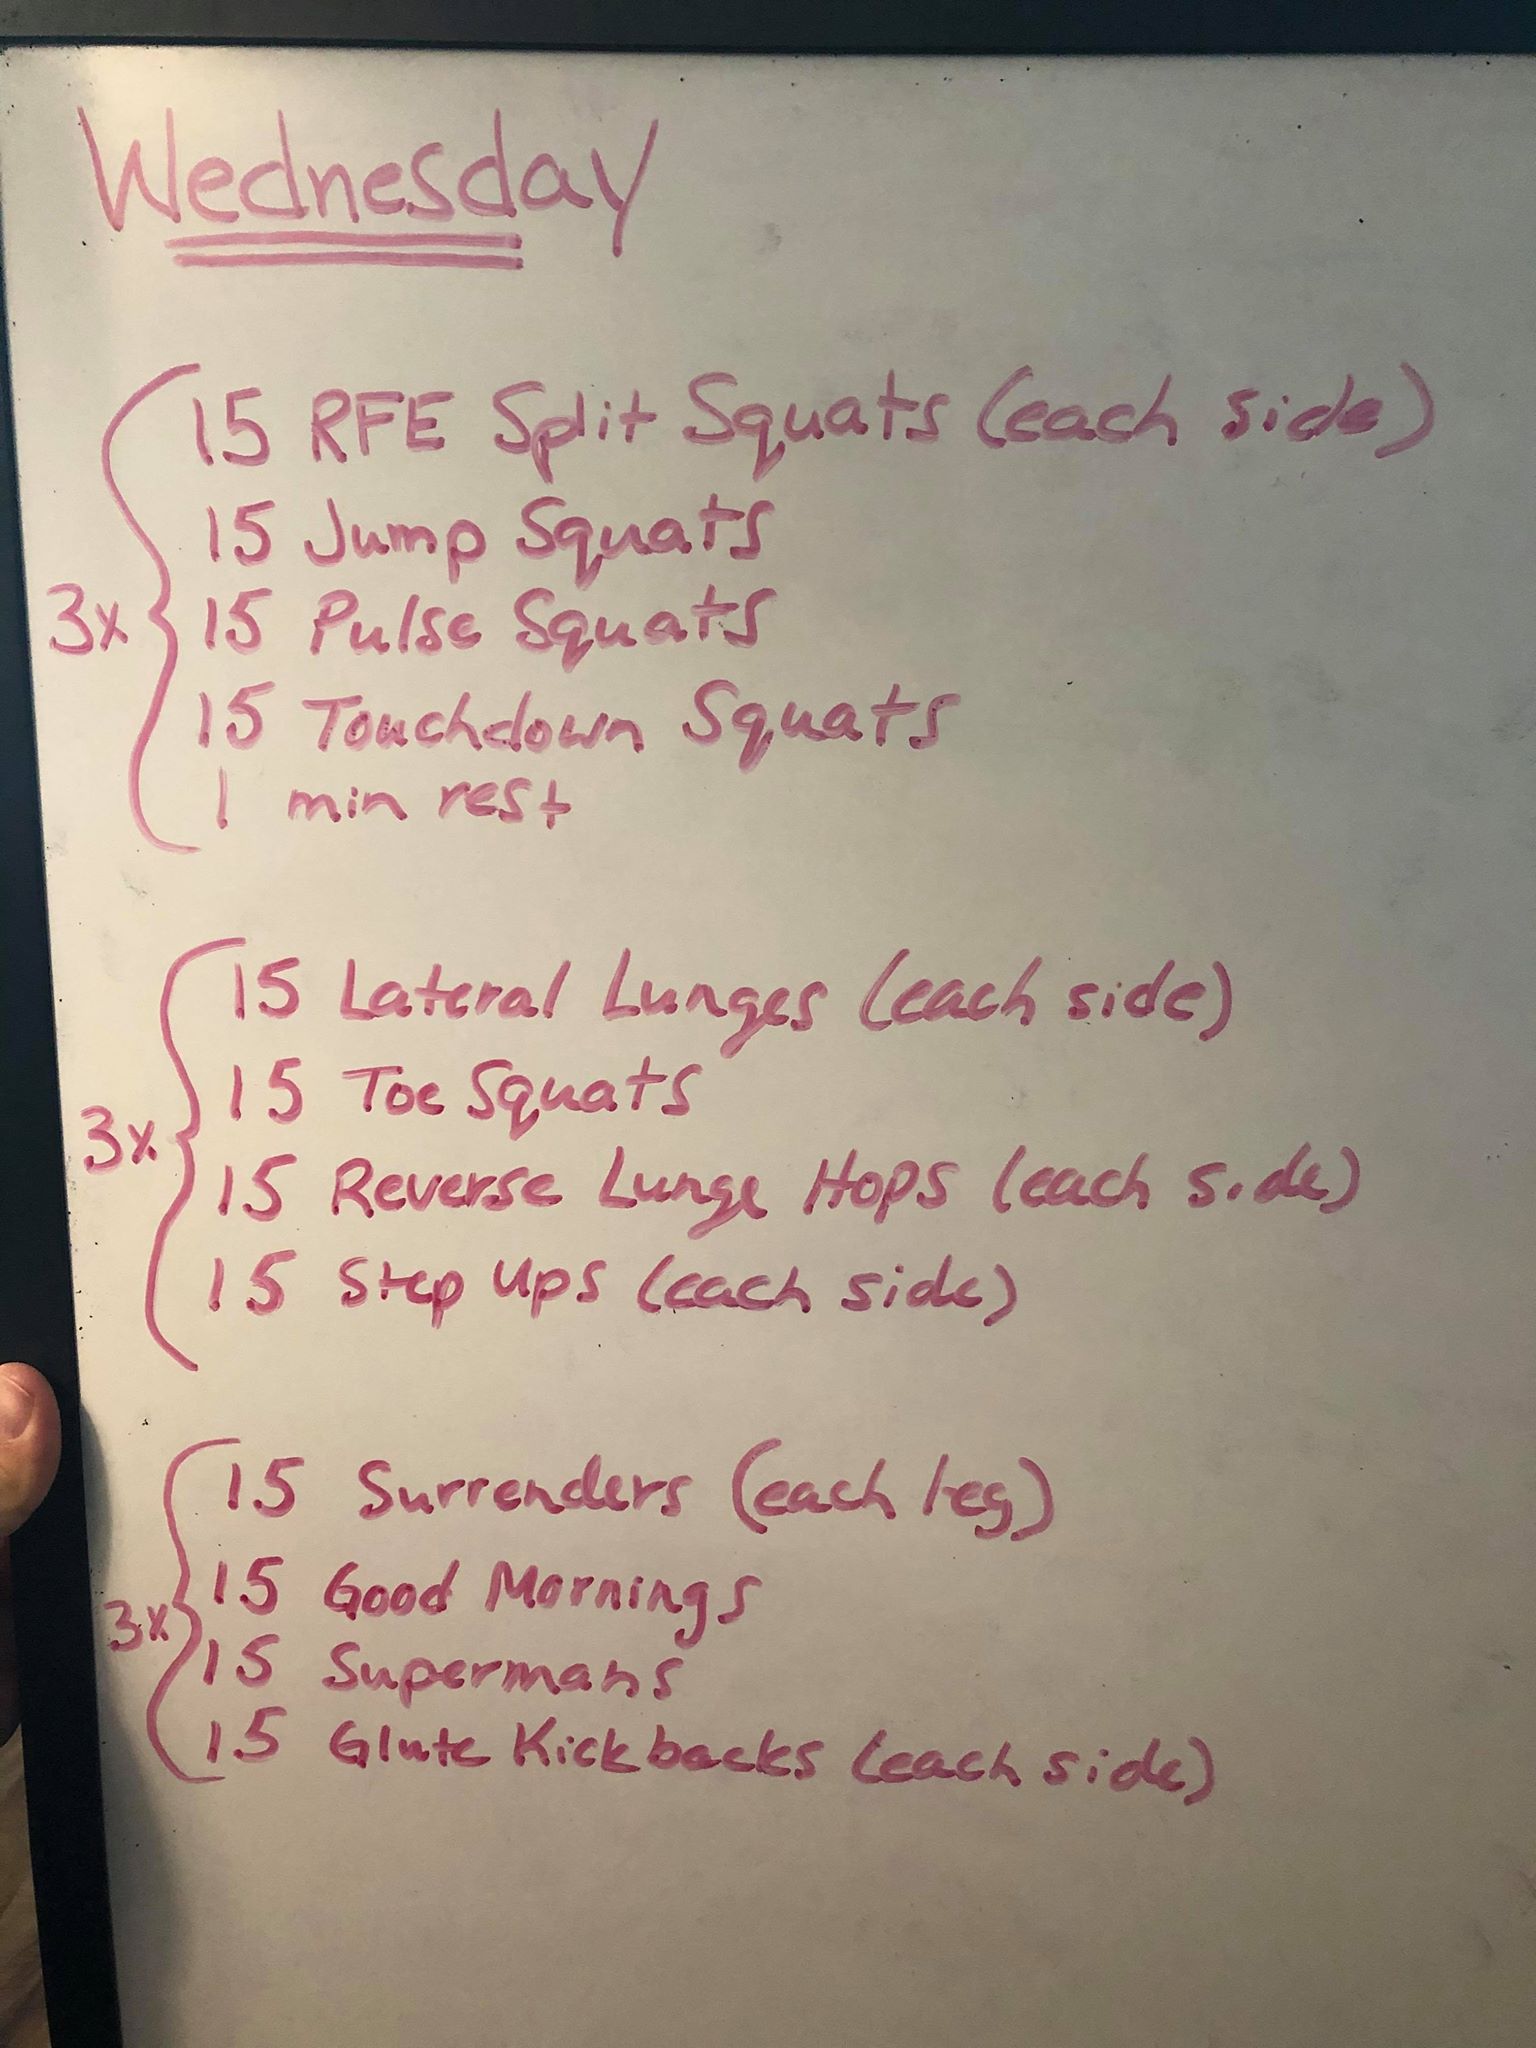 Wednesday
15 RFE Split Squats (each side)
15 Jump Squats
3x
15 Pulse Squats
15 Touchdown Squats
1 min rest
15 Lateral Lunges (each side)
15 Toe Squats
3x
15 Reverse Lunge Hops (each side)
15 Step Ups (each side)
15 Surrenders (each leg)
15 Good Mornings
3x
15 Supermans
15 Glute Kickbacks (each side)